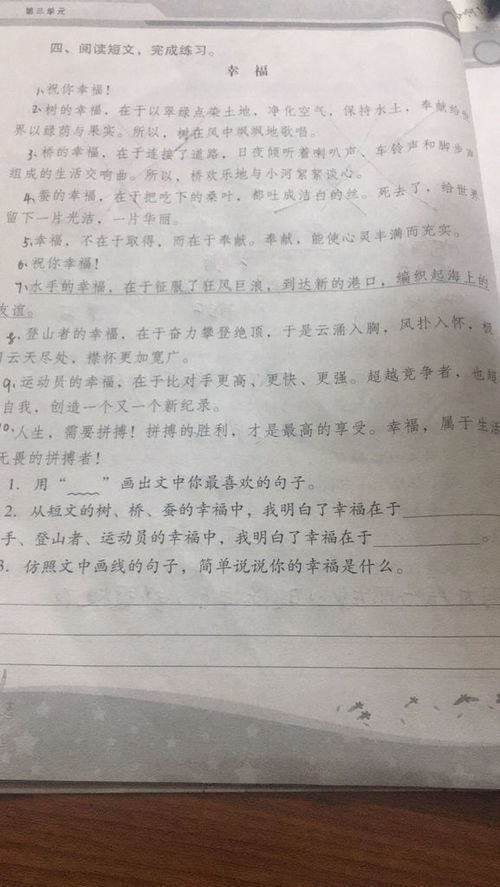 第三单元
四、阅读短文，完成练习。
幸 福
1、祝你幸福！
2、树的幸福，在于以翠绿点染土地，净化空气，保持水土，奉献给世
界以绿荫与果实。所以，树在风中飒飒地歌唱。
3、桥的幸福，在于连接了道路，日夜倾听着喇叭声、车铃声和脚步声
组成的生活交响曲。所以，桥欢乐地与小河絮絮谈心。
4、蚕的幸福，在于把吃下的桑叶，都吐成洁白的丝。死去了，给世界
留下一片光洁，一片华丽。
5、幸福，不在于取得，而在于奉献。奉献，能使心灵丰满而充实。
6、祝你幸福！
7、水手的幸福，在于征服了狂风巨浪，到达新的港口，编织起海上的
友谊。
8、登山者的幸福，在于奋力攀登绝顶，于是云涌入胸，风扑入怀，极
目云天尽处，襟怀更加宽广。
9、运动员的幸福，在于比对手更高、更快、更强。超越竞争者，也超
自我，创造一个又一个新纪录。
10、人生，需要拼搏！拼搏的胜利，才是最高的享受。幸福，属于生活
无畏的拼搏者！
1. 用“ ”画出文中你最喜欢的句子。
2. 从短文的树、桥、蚕的幸福中，我明白了幸福在于
手、登山者、运动员的幸福中，我明白了幸福在于 。
3. 仿照文中画线的句子，简单说说你的幸福是什么。